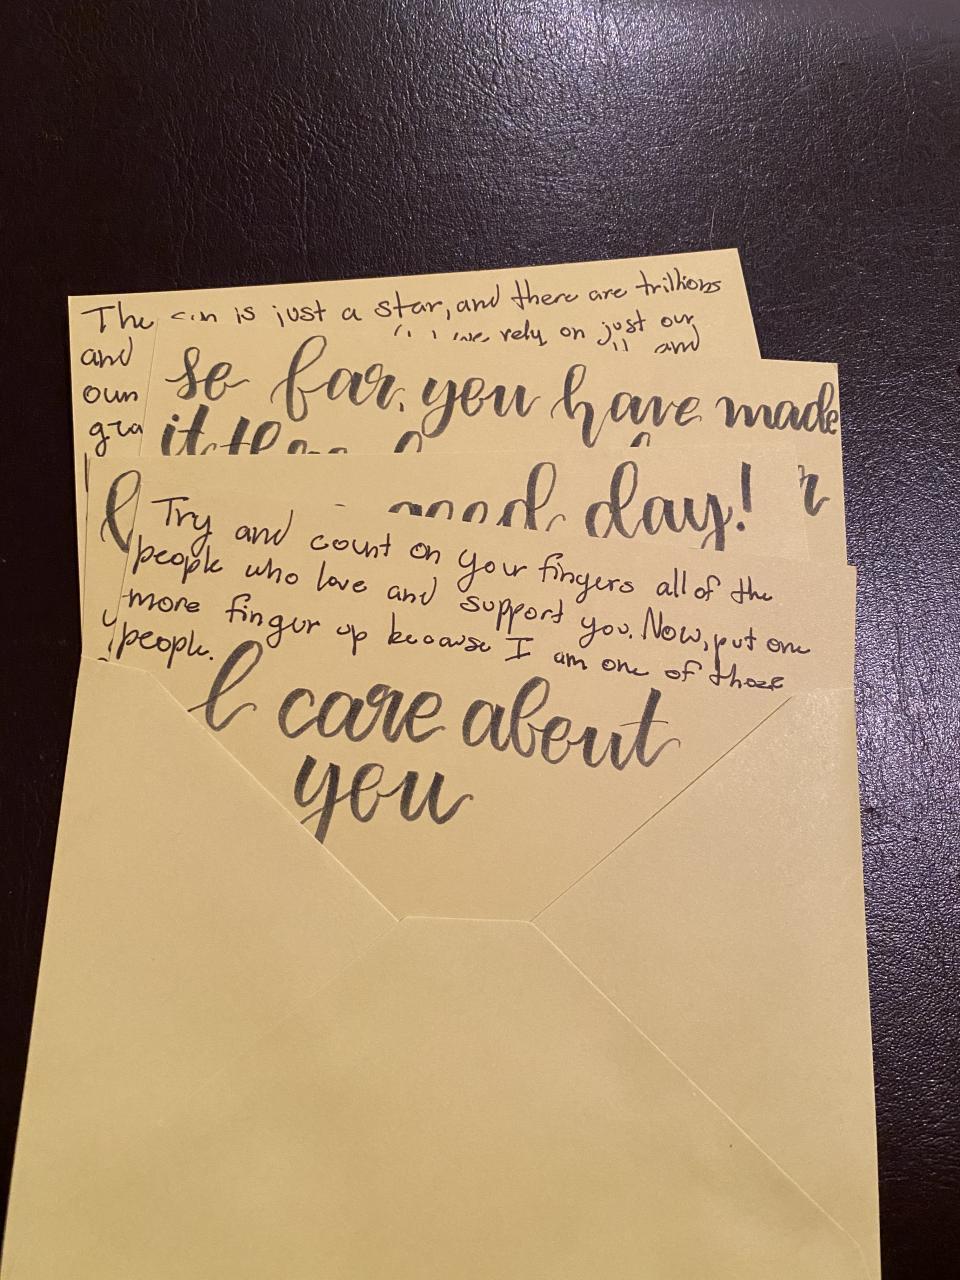 The sun is just a star, and there are trillions
and rely on just our
own and
gra
so far, you have made
it
good day!
Try and count on your fingers all of the
people who love and support you. Now, put one
more fingur up because I am one of those
people.
I care about
you